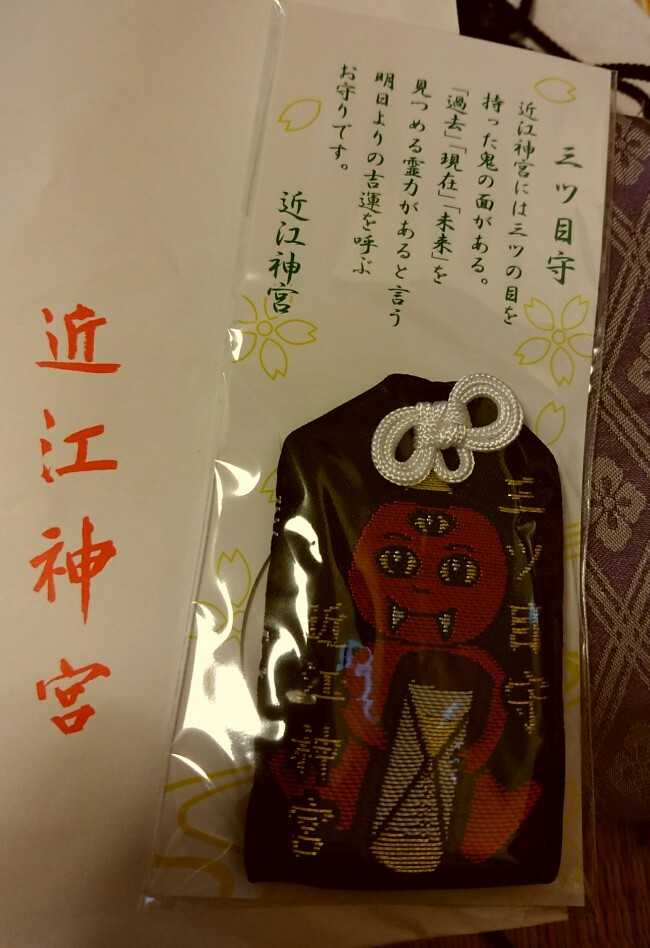 三ツ目守
近江神宮には三ツの目を
持った鬼の面がある。
「過去」「現在」「未来」を
見つめる霊力があると言う
明日よりの吉運を呼ぶ
お守りです。
近江神宮
三ツ目守
近江神宮
近江神宮